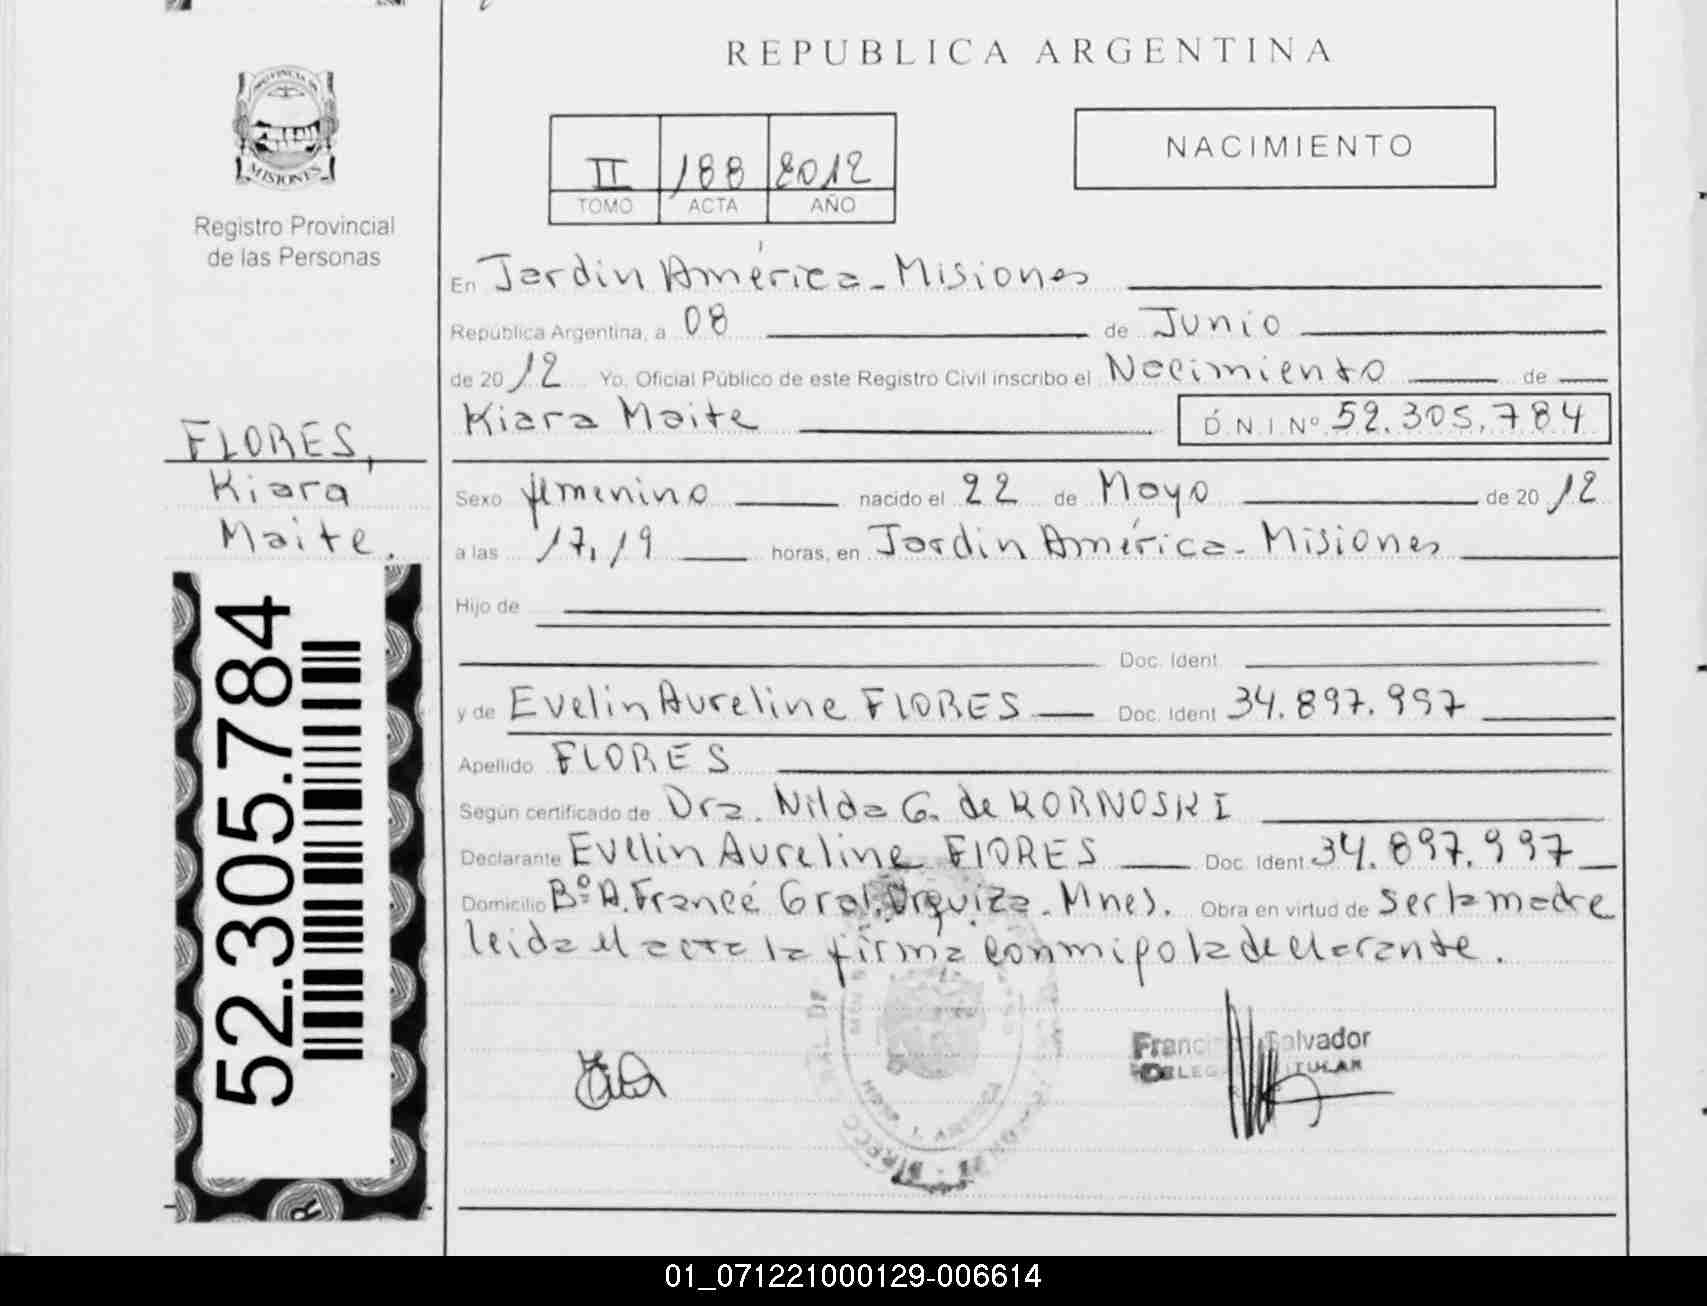 REPUBLICA ARGENTINA
PROVINCIA DE
MISIONES
Registro Provincial
de las Personas
II 188 2012
TOMO ACTA AÑO
NACIMIENTO
En Jardin América - Misiones
República Argentina, a 08 de Junio
de 20 12 Yo, Oficial Público de este Registro Civil inscribo el Nacimiento de
Kiara Maite D.N.I. Nº 52.305.784
FLORES,
Kiara
Maite.
52.305.784
Sexo femenino nacido el 22 de Mayo de 20 12
a las 17,19 horas, en Jardin América - Misiones
Hijo de
Doc. Ident.
y de Evelin Aureline FLORES Doc. Ident 34.897.997
Apellido FLORES
Según certificado de Dra. Nilda G. de KORNOSKI
Declarante Evelin Aureline FLORES Doc. Ident. 34.897.997
Domicilio Bº A. Francé Gral. Urquiza - Mnes. Obra en virtud de ser la madre
leida el acta la firma conmigo la declarante.
Salvador
01_071221000129-006614